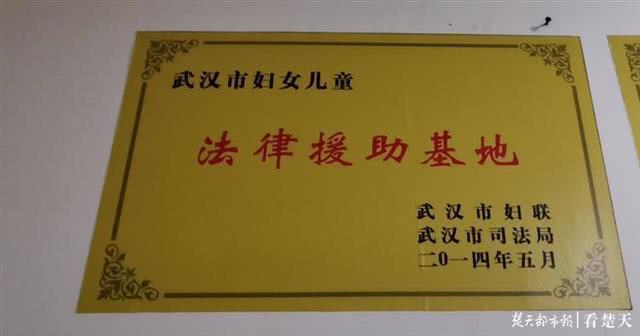 武汉市妇女儿童
法律援助基地
武汉市妇联
武汉市司法局
二0一四年五月
楚天都市报|看楚天